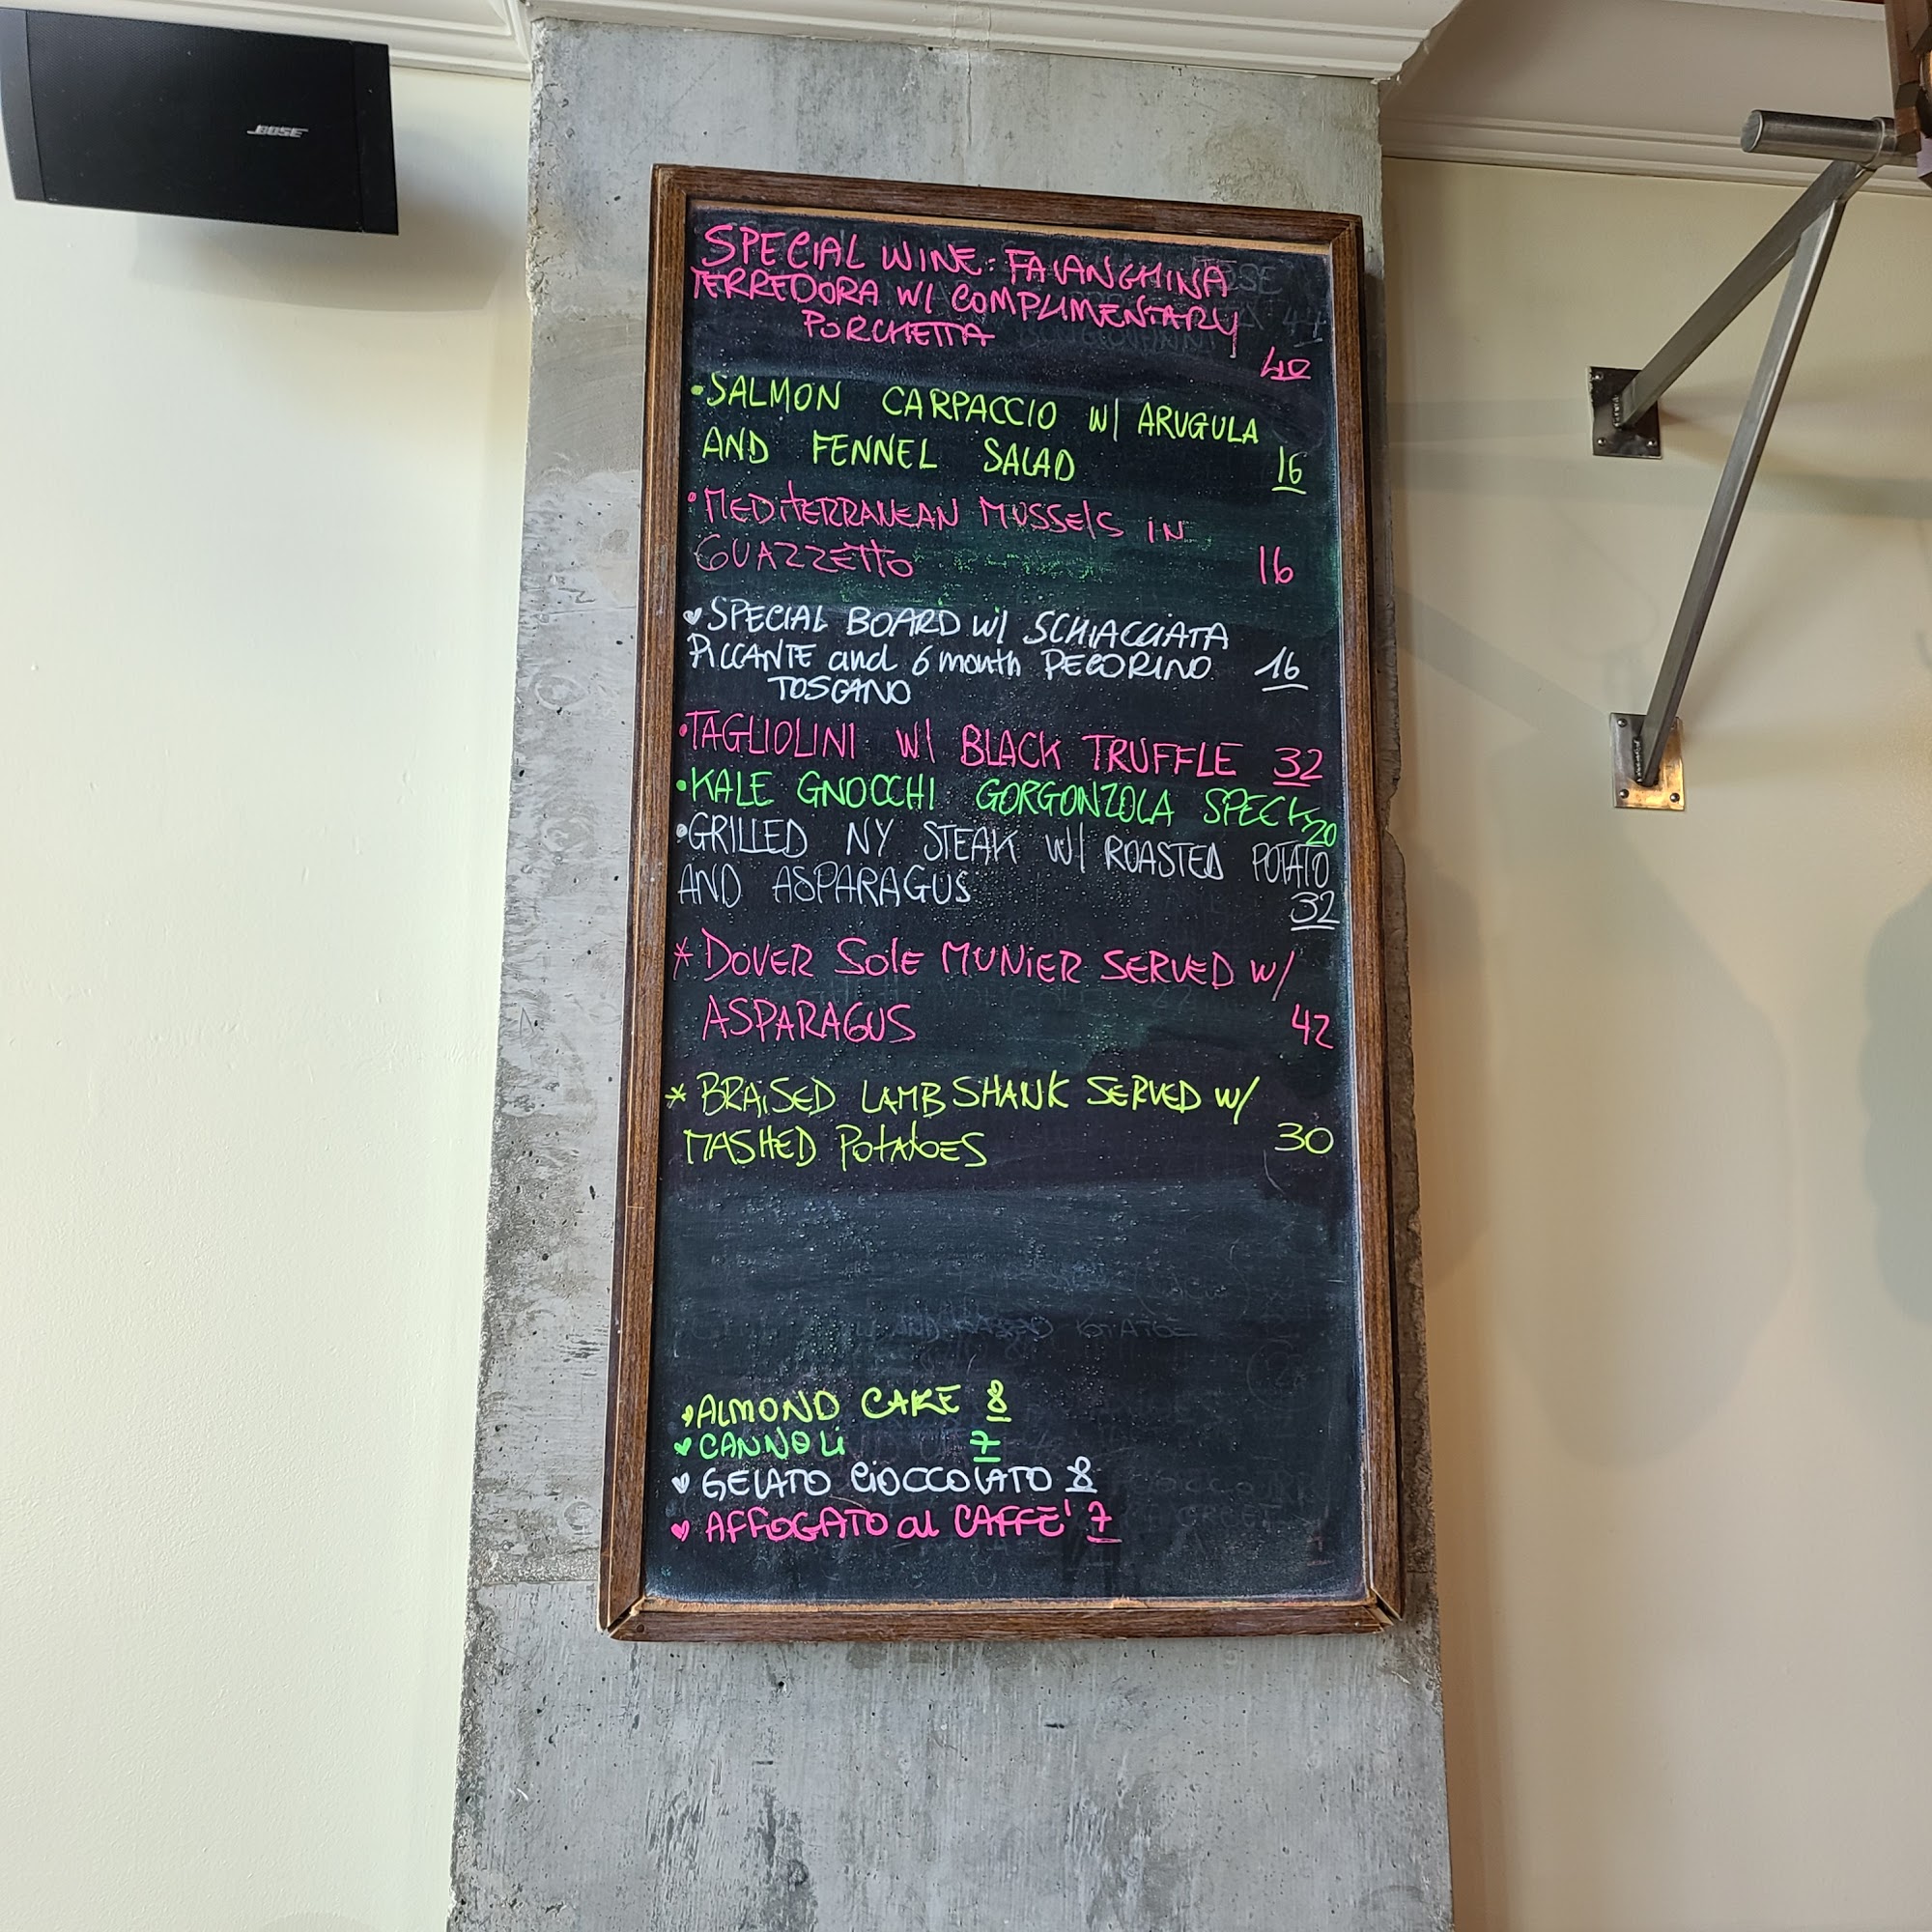 BOSE
SPECIAL WINE: FALANGHINA
TERREDORA W/ COMPLIMENTARY
PORCHETTA
40
• SALMON CARPACCIO W/ ARUGULA
AND FENNEL SALAD 16
• MEDITERRANEAN MUSSELS IN
GUAZZETTO 16
♥ SPECIAL BOARD W/ SCHIACCIATA
PICCANTE and 6 month PECORINO 16
TOSCANO
• TAGLIOLINI W/ BLACK TRUFFLE 32
• KALE GNOCCHI GORGONZOLA SPECK 20
• GRILLED NY STEAK W/ ROASTED POTATO
AND ASPARAGUS 32
* DOVER SOLE MUNIER SERVED W/
ASPARAGUS 42
* BRAISED LAMB SHANK SERVED W/
MASHED POTATOES 30
♥ ALMOND CAKE 8
♥ CANNOLI 7
♥ GELATO CIOCCOLATO 8
♥ AFFOGATO al CAFFE' 7